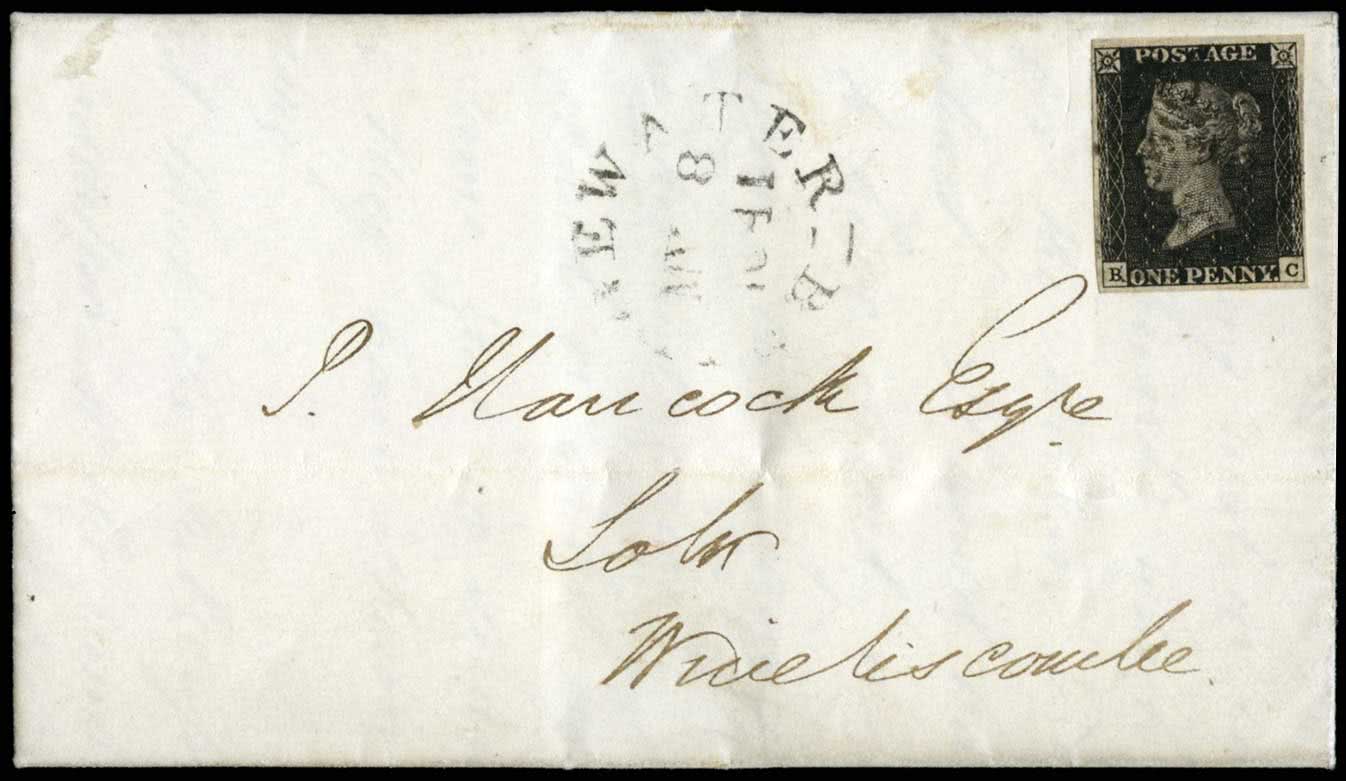 POSTAGE
B ONE PENNY. C
EW TER
8
J. Hancock Esqre
Solr
Wiveliscombe